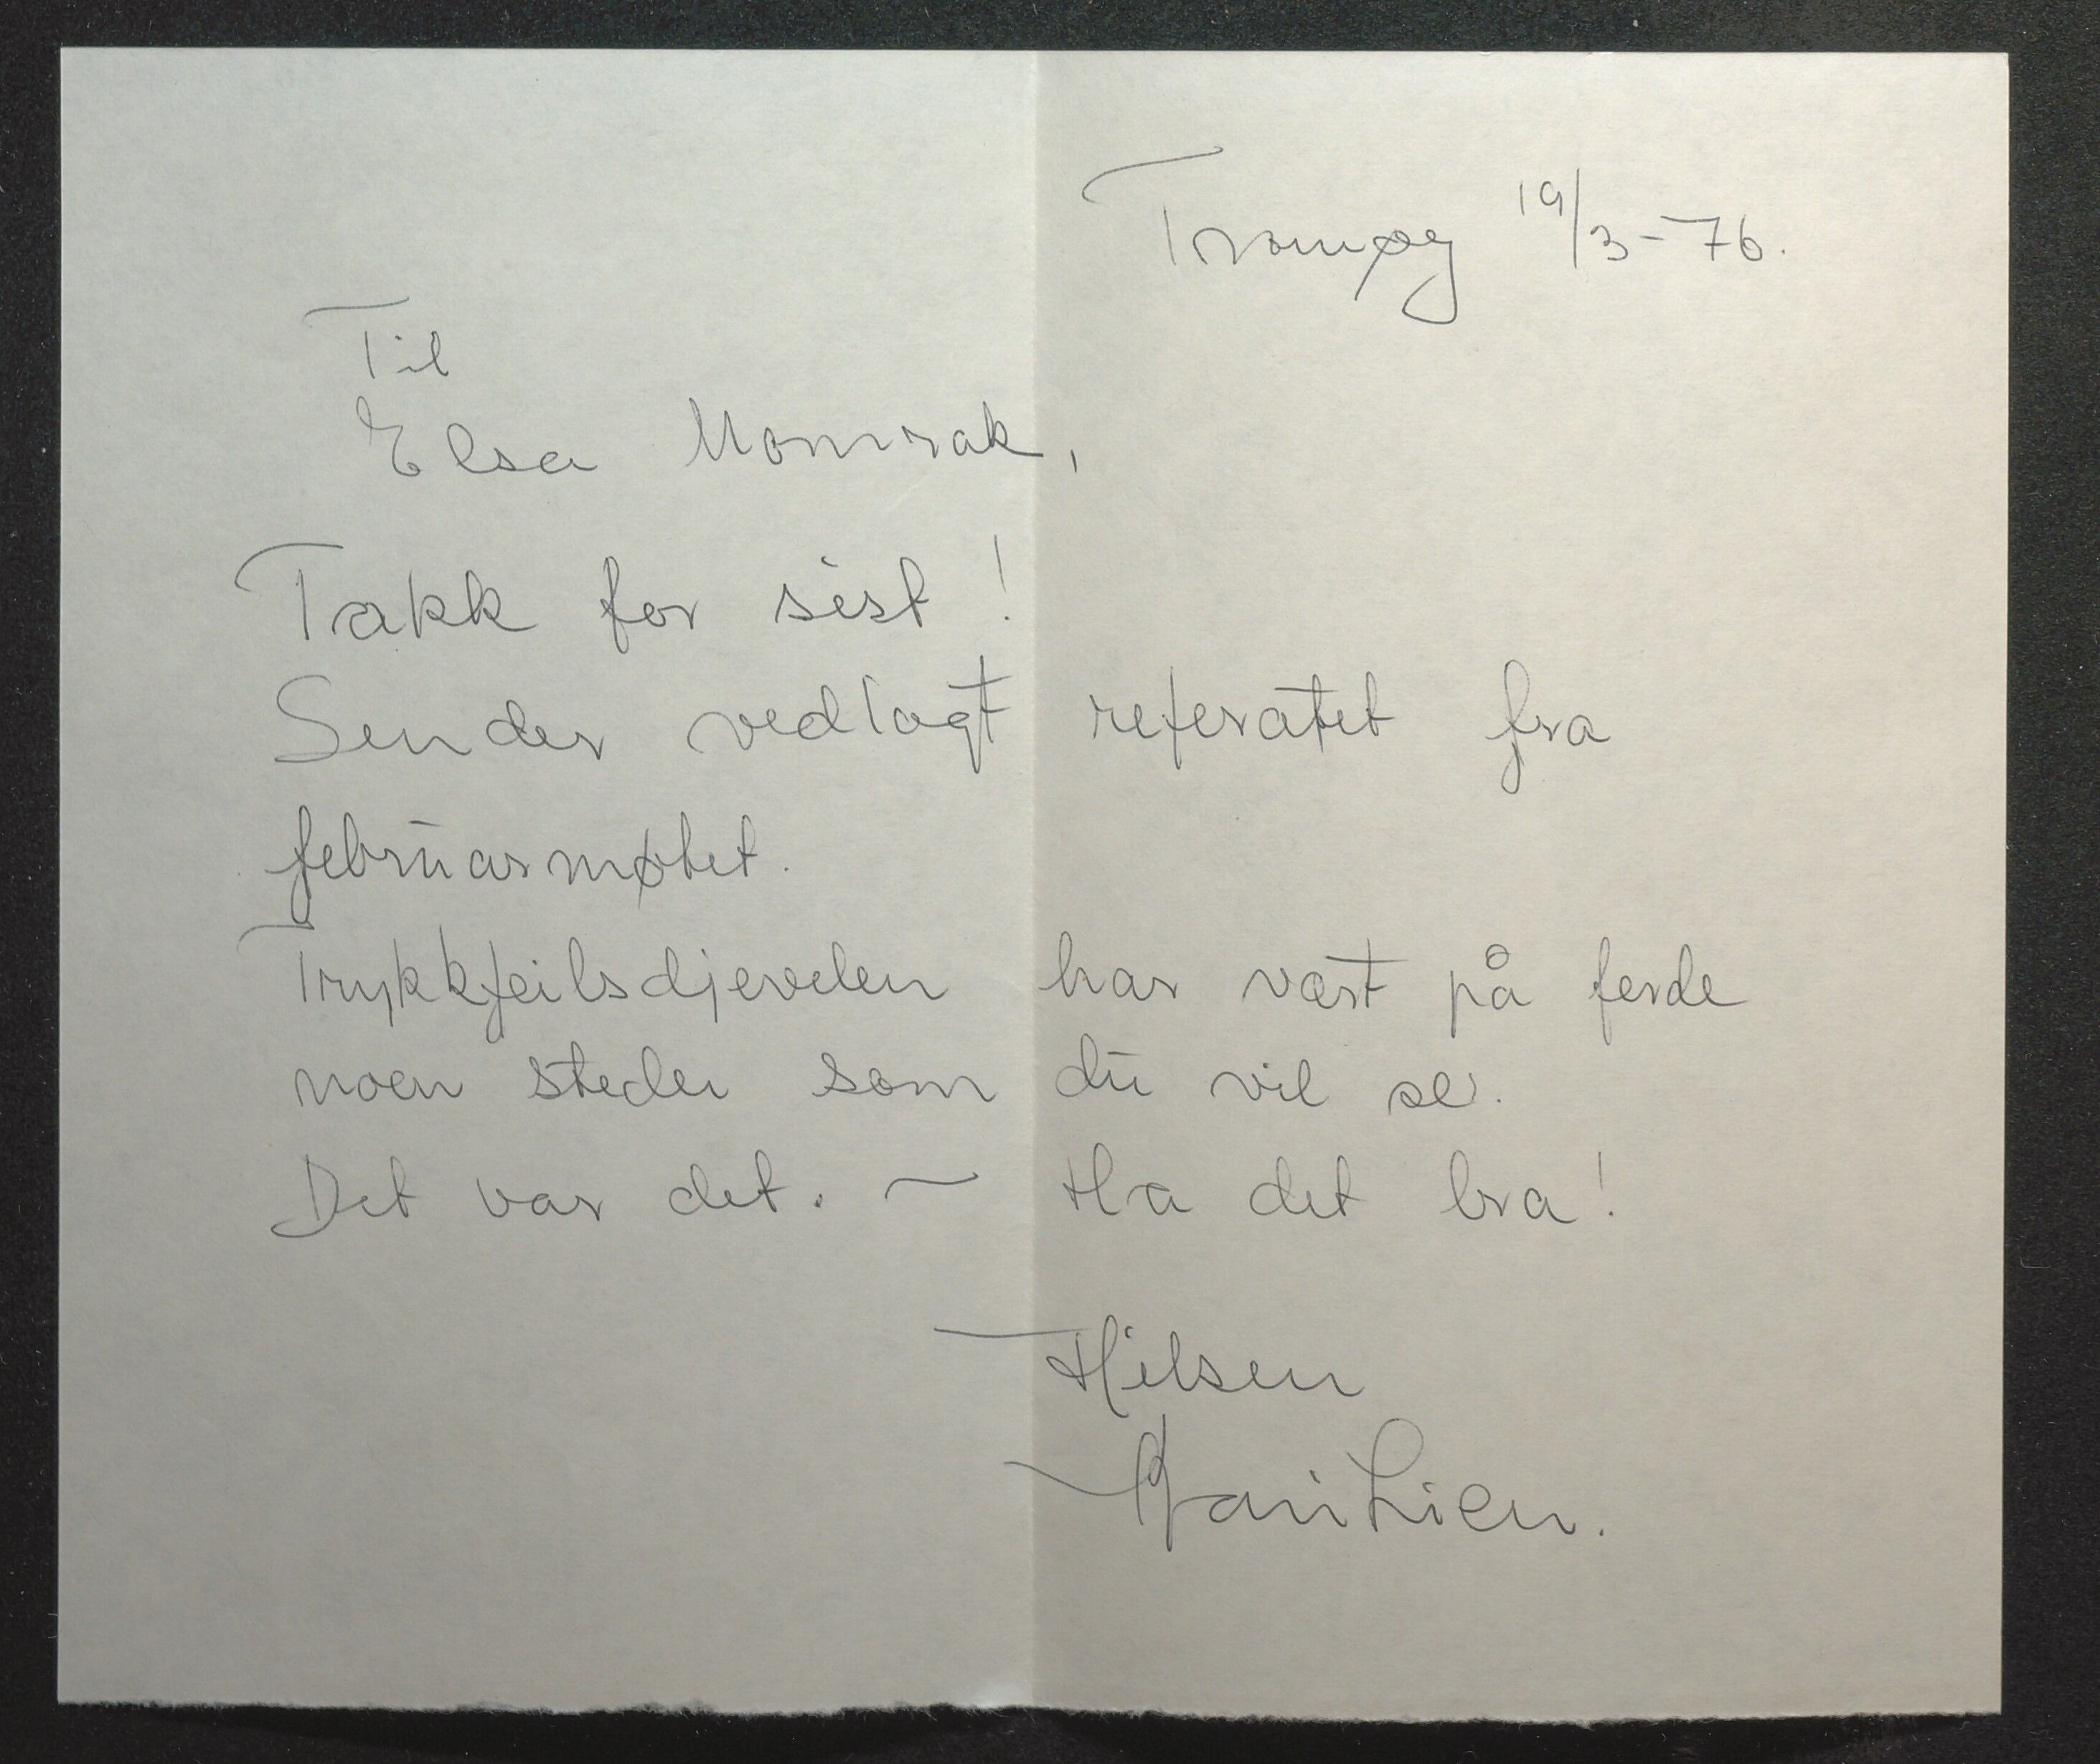 Tromøy 19/3-76.
Til
Elsa Momrak,
Takk for sist!
Sender vedlagt referatet fra
februarmøtet.
Trykkfeilsdjevelen har vært på ferde
noen steder som du vil se.
Det var det. ~ Ha det bra!
Hilsen
Kari Lien.